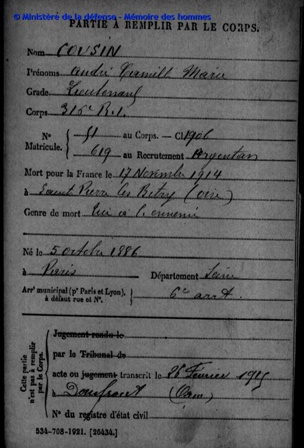 © Ministère de la défense - Mémoire des hommes
PARTIE A REMPLIR PAR LE CORPS.
Nom COUSIN
Prénoms André Camille Marie
Grade Lieutenant
Corps 315e R.I.
No 51 au Corps. — Cl. 1906
Matricule. 619 au Recrutement Argentan
Mort pour la France le 17 Novembre 1914
à Saint Pierre lès Bitry (Oise)
Genre de mort Tué à l'ennemi
Né le 5 octobre 1886
à Paris Département Seine
Arrt municipal (pr Paris et Lyon), à défaut rue et No. 6e arrt
Cette partie n'est pas à remplir par le Corps.
Jugement rendu le
par le Tribunal de
acte ou jugement transcrit le 26 Février 1915
à Domfront (Orne)
No du registre d'état civil
534-708-1921. [26434.]